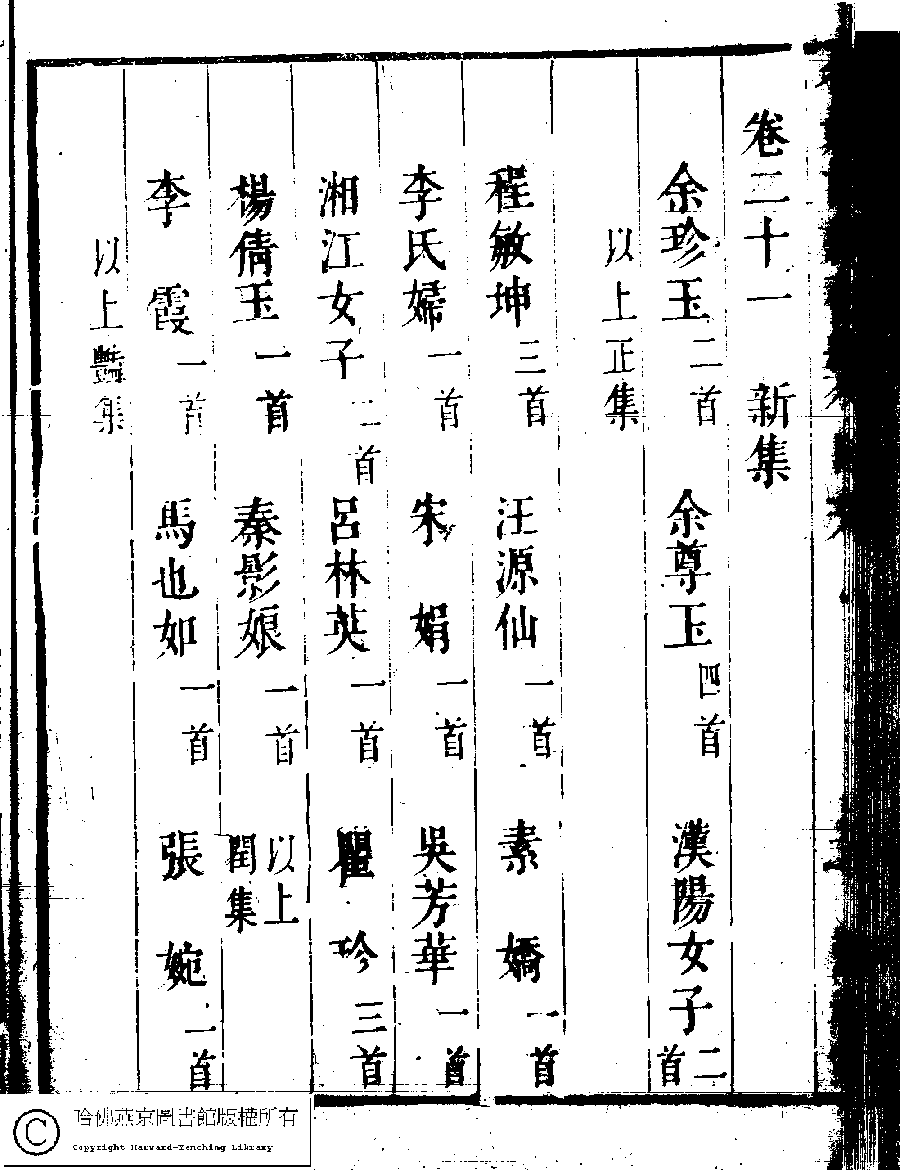 卷二十一 新集
余珍玉 二首 余尊玉 四首 漢陽女子 二首
以上正集
程敏坤 三首 汪源仙 一首 素嬌 一首
李氏婦 一首 宋娟 一首 吳芳華 一首
湘江女子 二首 呂林英 一首 瞿珍 三首
楊倩玉 一首 秦影娘 一首 以上閏集
李霞 一首 馬也如 一首 張婉 一首
以上豔集
哈佛燕京圖書館版權所有
Copyright Harvard-Yenching Library